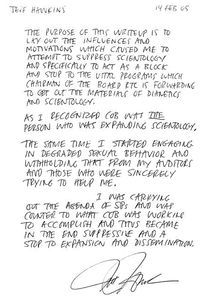 JEFF HAWKINS 14 FEB 05
THE PURPOSE OF THIS WRITEUP IS TO
LAY OUT THE INFLUENCES AND
MOTIVATIONS WHICH CAUSED ME TO
ATTEMPT TO SUPPRESS SCIENTOLOGY
AND SPECIFICALLY TO ACT AS A BLOCK
AND STOP TO THE VITAL PROGRAMS WHICH
CHAIRMAN OF THE BOARD RTC IS FORWARDING
TO GET OUT THE MATERIALS OF DIANETICS
AND SCIENTOLOGY.
AS I RECOGNIZED COB WAS THE
PERSON WHO WAS EXPANDING SCIENTOLOGY.
THE SAME TIME I STARTED ENGAGING
IN DEGRADED SEXUAL BEHAVIOR AND
WITHHOLDING THAT FROM MY AUDITORS
AND THOSE WHO WERE SINCERELY
TRYING TO HELP ME.
I WAS CARRYING
OUT THE AGENDA OF SPs AND WAS
COUNTER TO WHAT COB WAS WORKING
TO ACCOMPLISH AND THUS BECAME
IN THE END SUPPRESSIVE AND A
STOP TO EXPANSION AND DISSEMINATION.